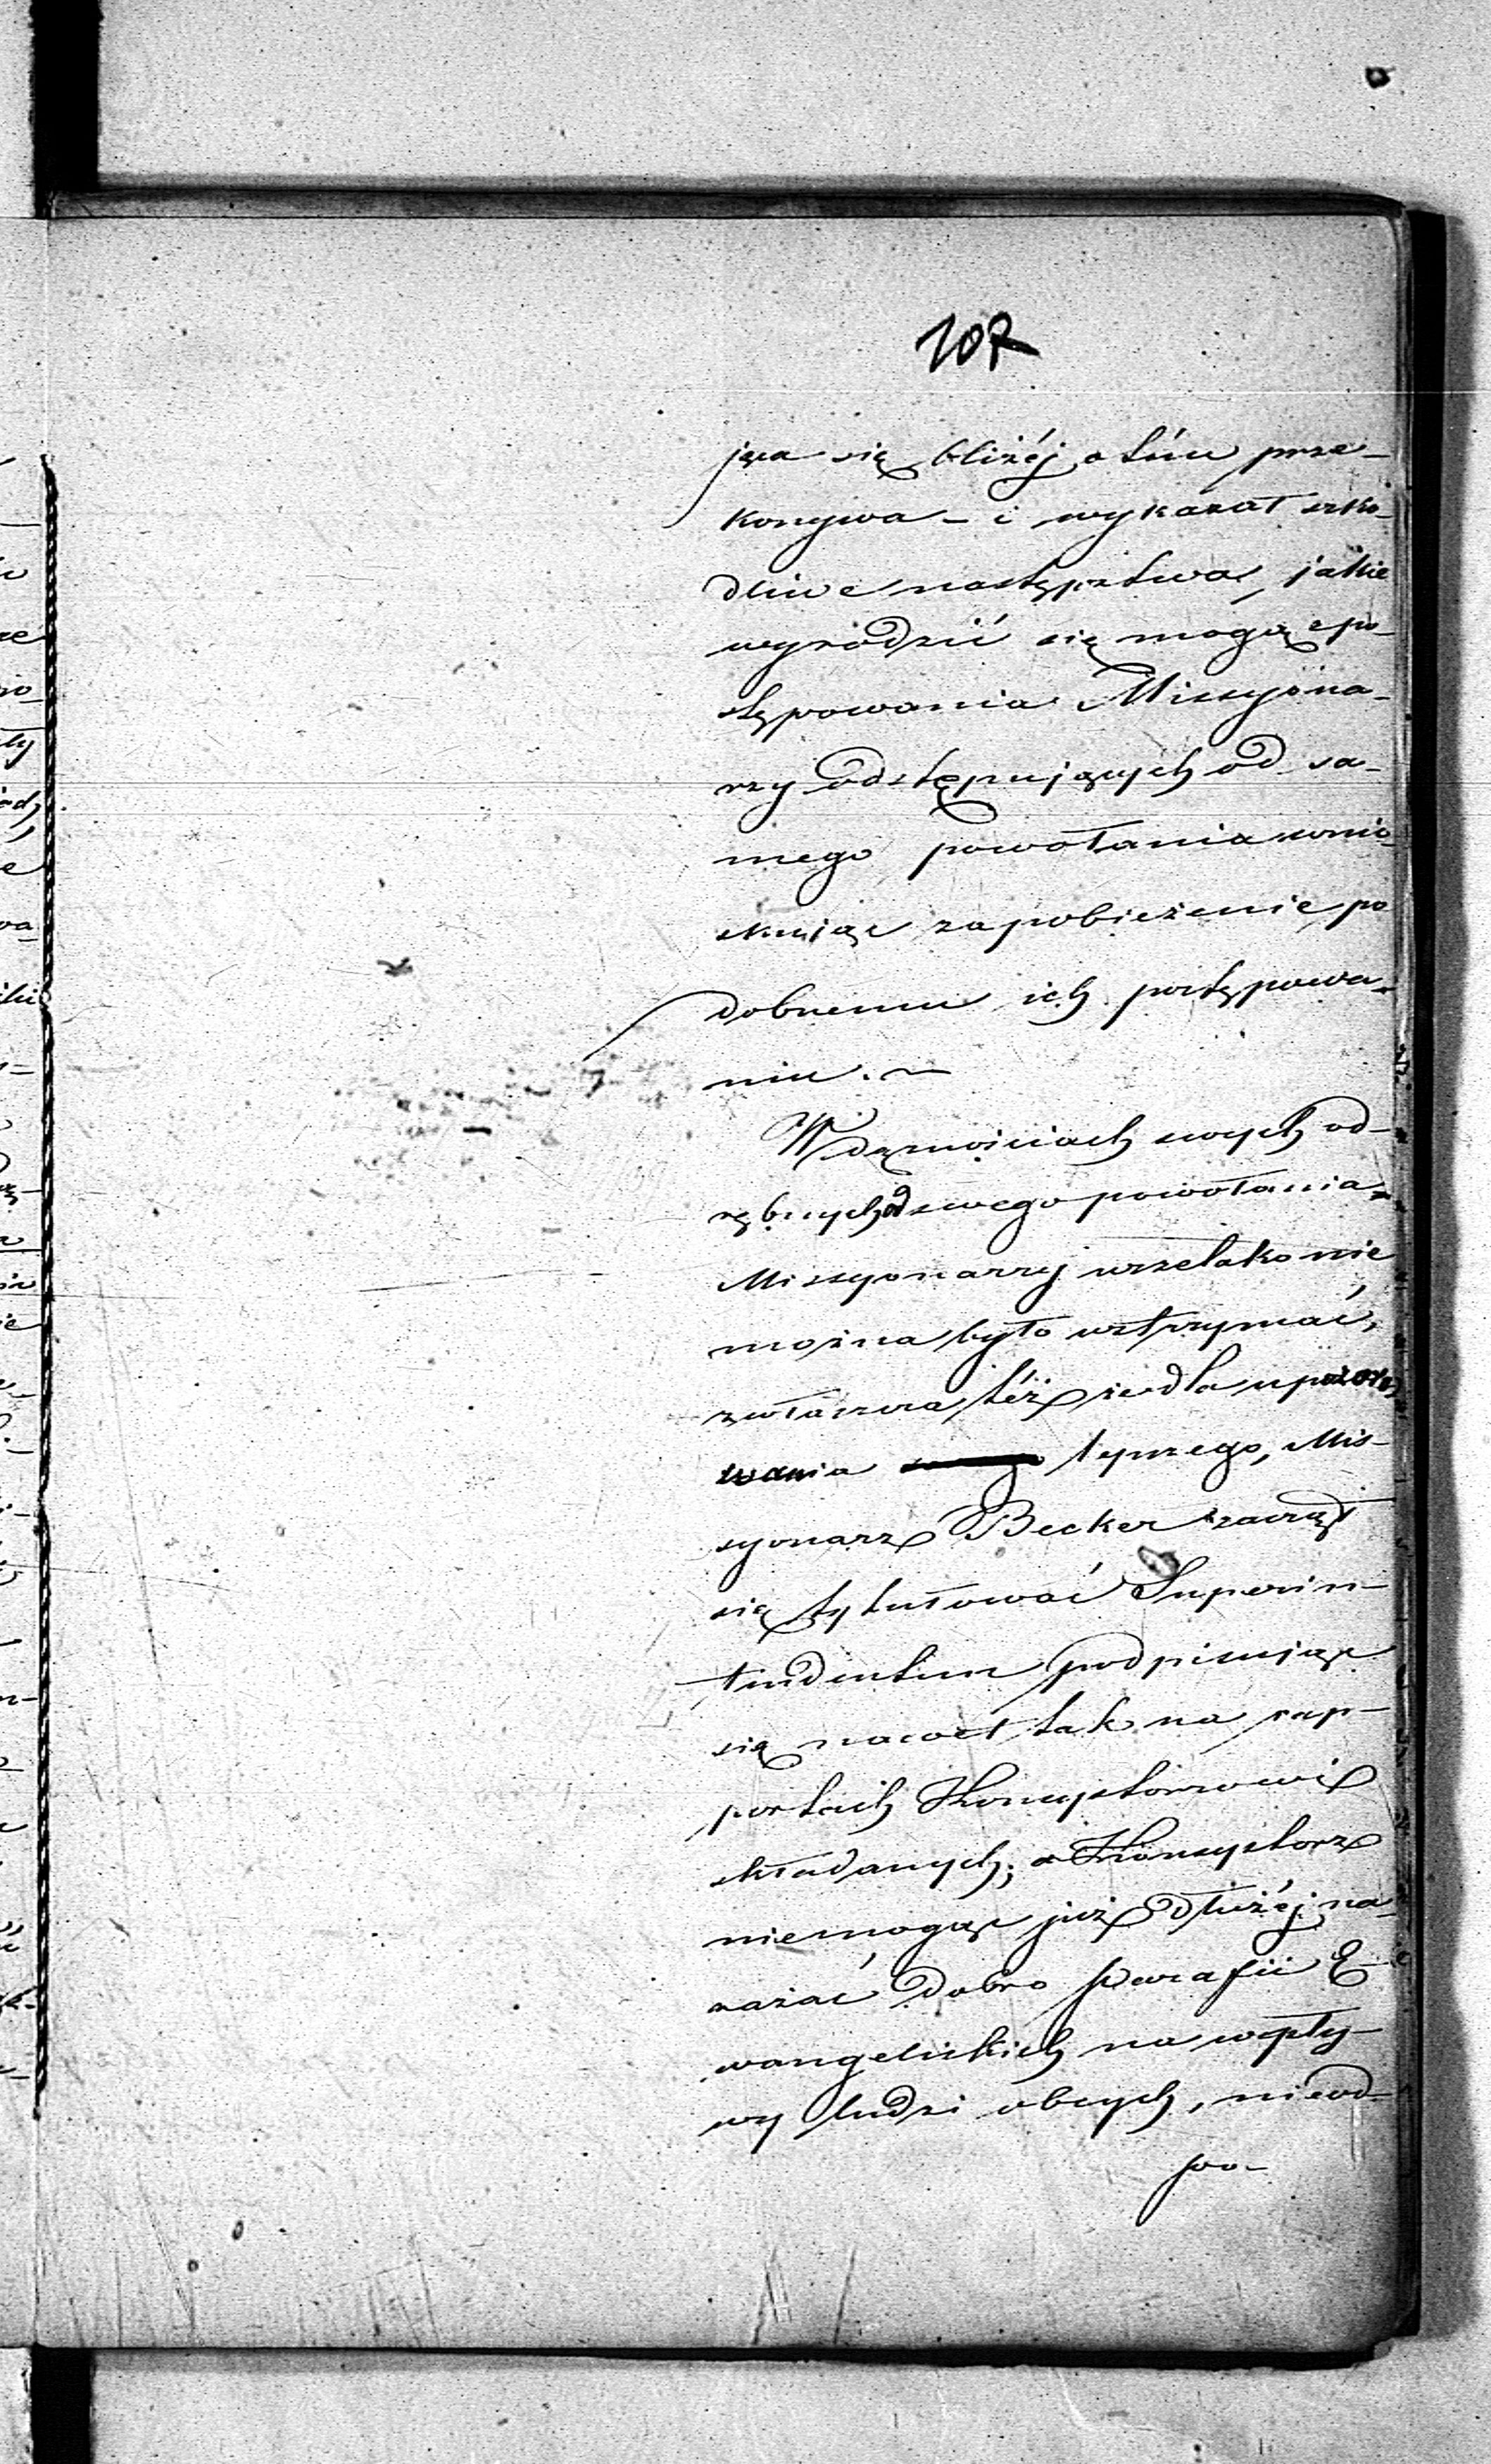 107
jąca się bliżéj o tém prze-
konywa – i wykazał szko-
dliwe następstwa, jakie
wyrodzić się mogą z po-
stępowania Missyona-
rzy odstępujących od sa-
mego powołania wnio-
skując zapobieżenie po
dobnemu ich postępowa-
niu. –
W dążnościach swych od-
rębnych od swego powołania
Missyonarzy wszelako nie
można było wstrzymać,
zwłaszcza téż że dla upozoro-
wania lepszego, Mis-
syonarz Becker zaczął
się tytułować Superin-
tendentem podpisując
się nawet tak na rap-
portach Konsystorzowi
składanych; a Konsystorz
niemogąc już dłużéj na-
rażać dobro parafii E-
wangelickich na wpły-
wy ludzi obcych, nieod-
po-